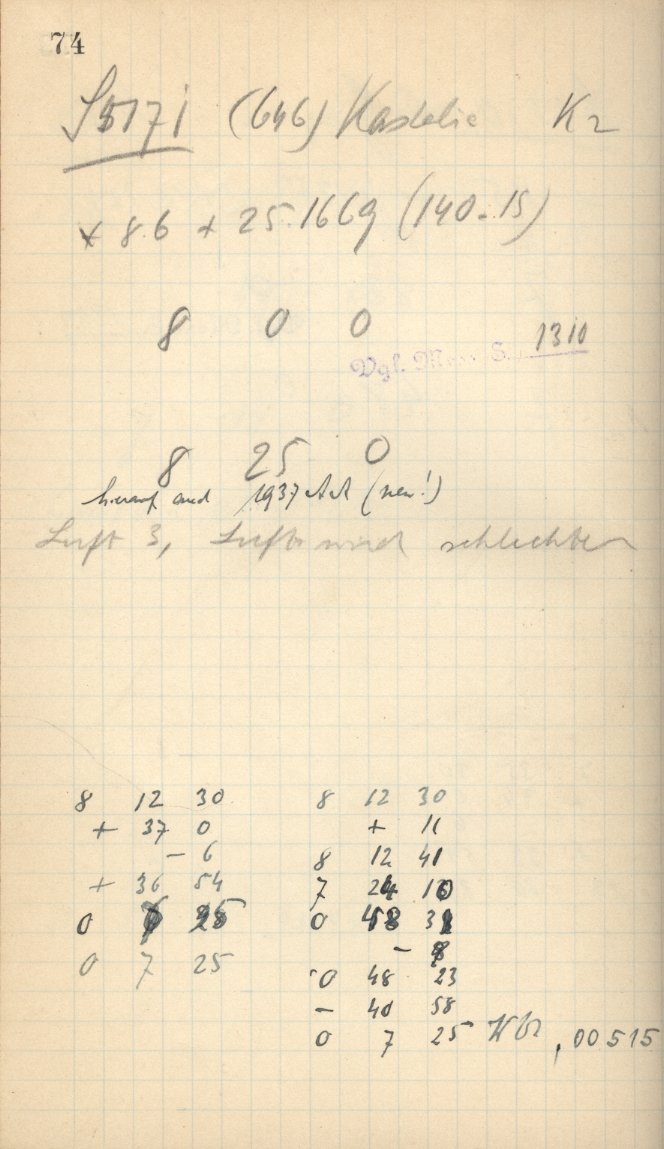 74
S5171 (646) Kastalia K2
+ 8.6 + 25.1669 (140-15)
8 0 0
Vgl. S. 1310
8 25 0
hierauf auch 1937 AA (neu!)
Luft 3, Luft wird schlechter
8 12 30
+ 37 0
- 6
+ 36 54
0 7 25
0 7 25
8 12 30
+ 11
8 12 41
7 24 10
0 48 31
- 8
0 48 23
- 40 58
0 7 25 ,00515